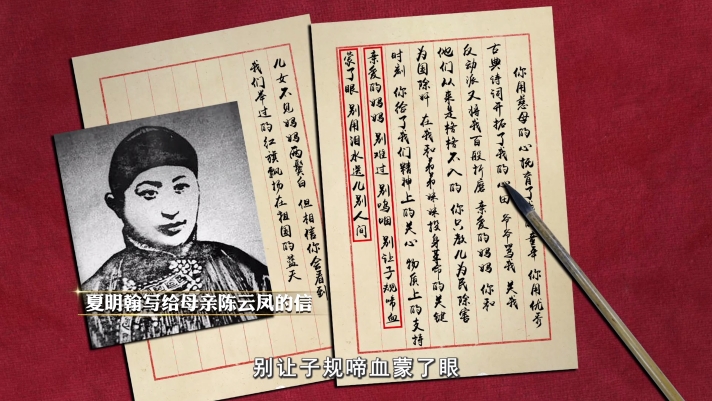 你用慈母的心抚育了 童年 你用优秀
古典诗词开拓了我的心田 爷爷骂我 关我
反动派又将我百般折磨 亲爱的妈妈 你和
他们从来是格格不入的 你只教儿为民除害
为国除奸 在我和弟弟妹妹投身革命的关键
时刻 你给了我们精神上的关心 物质上的支持
亲爱的妈妈 别难过 别呜咽 别让子规啼血
蒙了眼 别用泪水送儿别人间
儿女不见妈妈两鬓白 但相信你会看到
我们举过的红旗飘扬在祖国的蓝天
夏明翰写给母亲陈云凤的信
别让子规啼血蒙了眼